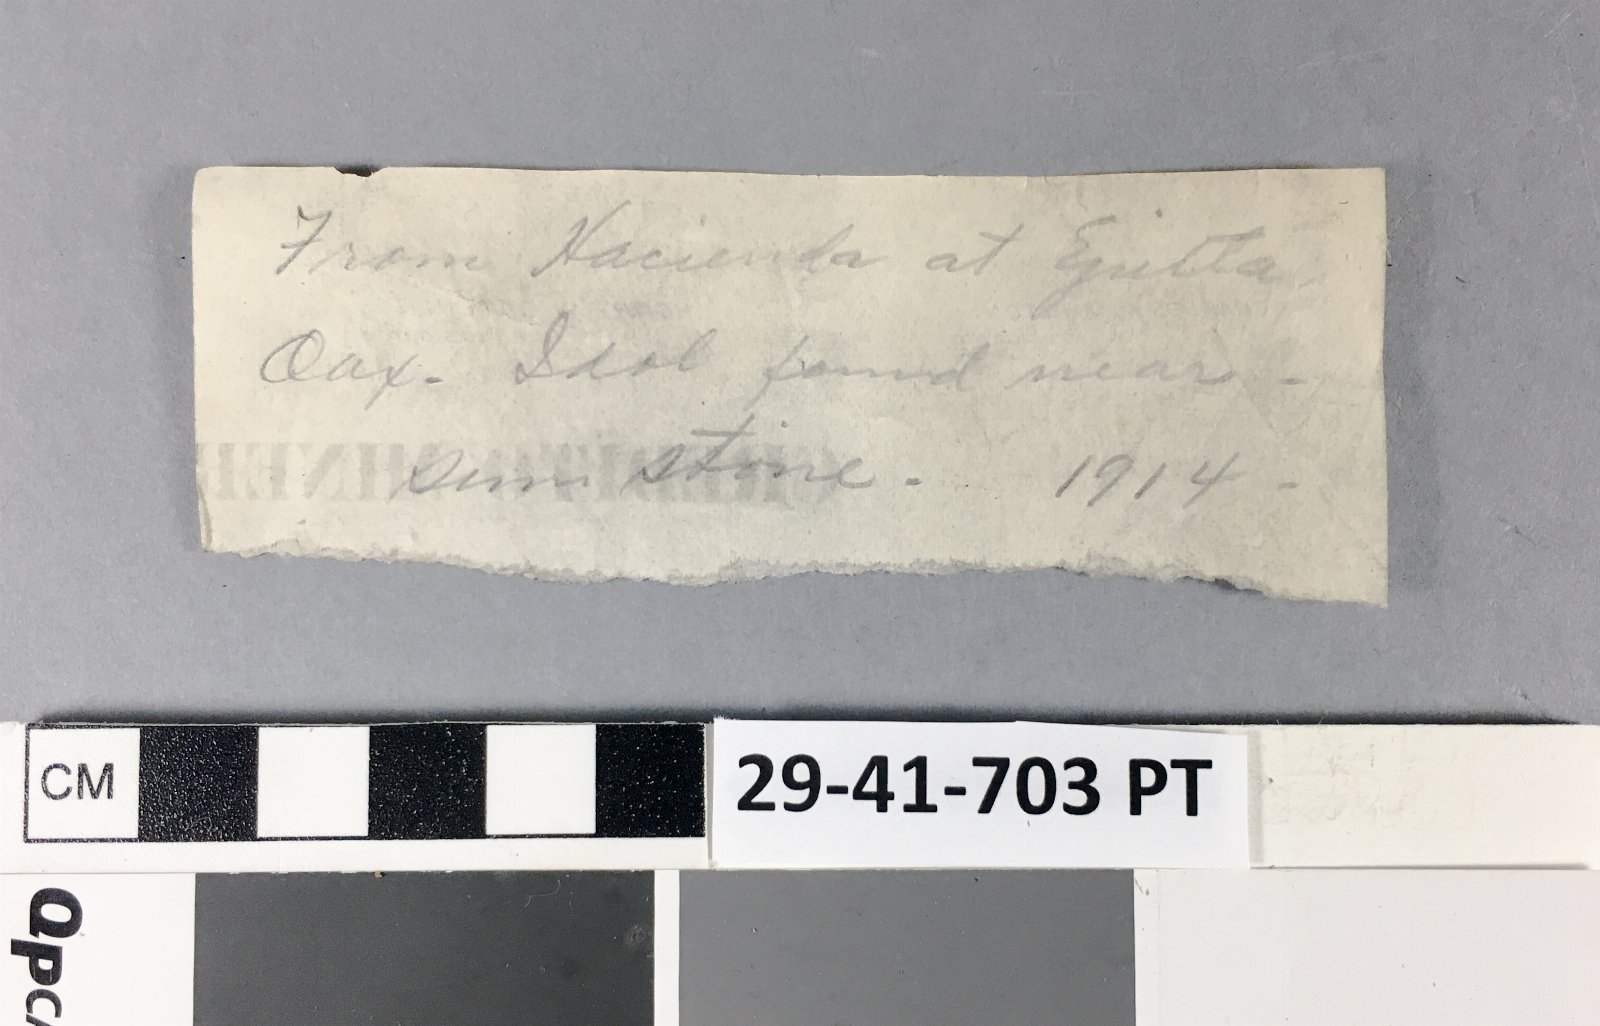 From Hacienda at Ejutla
Oax. Idol found near -
sun stone. 1914 -
CM
29-41-703 PT
QPC